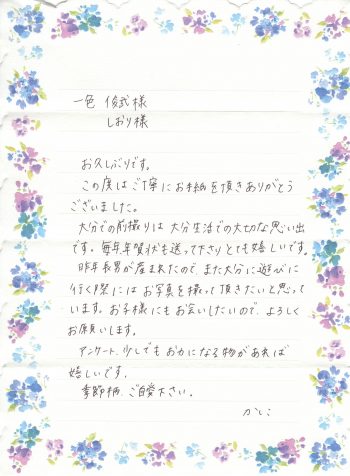 一色 俊哉様
しおり様
お久しぶりです。
この度はご丁寧にお手紙を頂きありがとう
ございました。
大分での前撮りは大分生活での大切な思い出
です。毎年年賀状も送って下さりとても嬉しいです。
昨年長男が産まれたので、また大分に遊びに
行く際にはお写真を撮って頂きたいと思って
います。お子様にもお会いしたいので、よろしく
お願いします。
アンケート、少しでもお力になる物があれば
嬉しいです。
季節柄、ご自愛下さい。